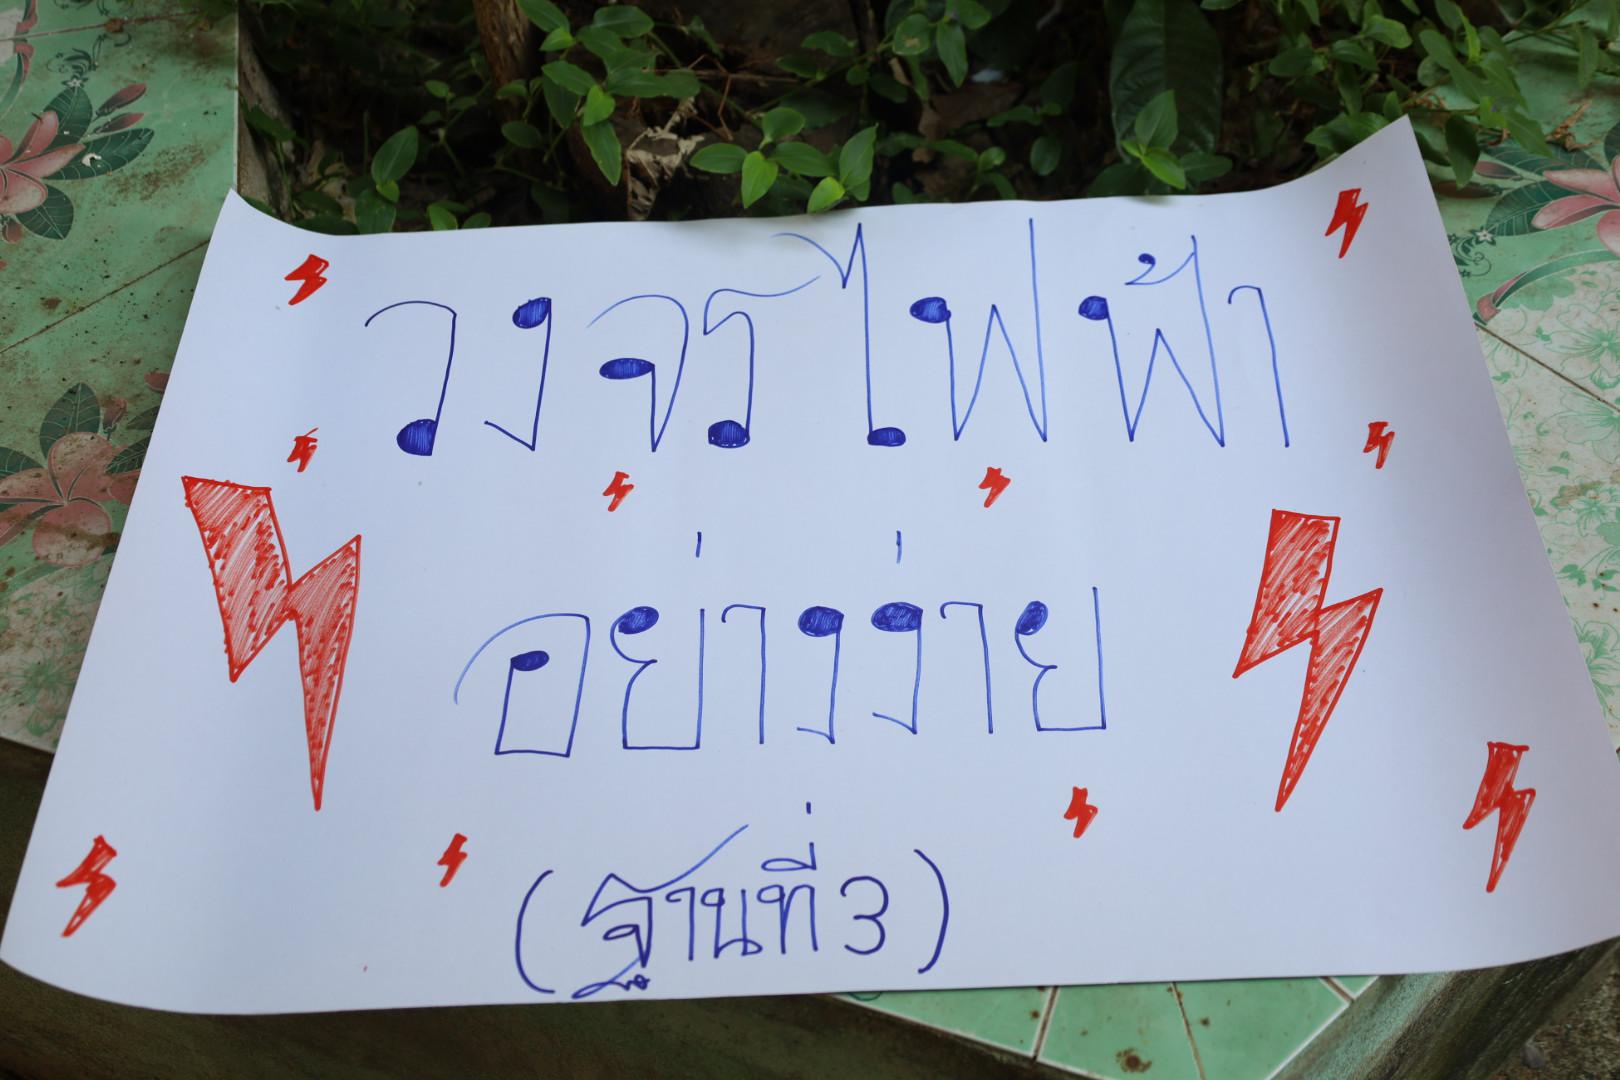 วงจรไฟฟ้า
อย่างง่าย
(ฐานที่ 3)